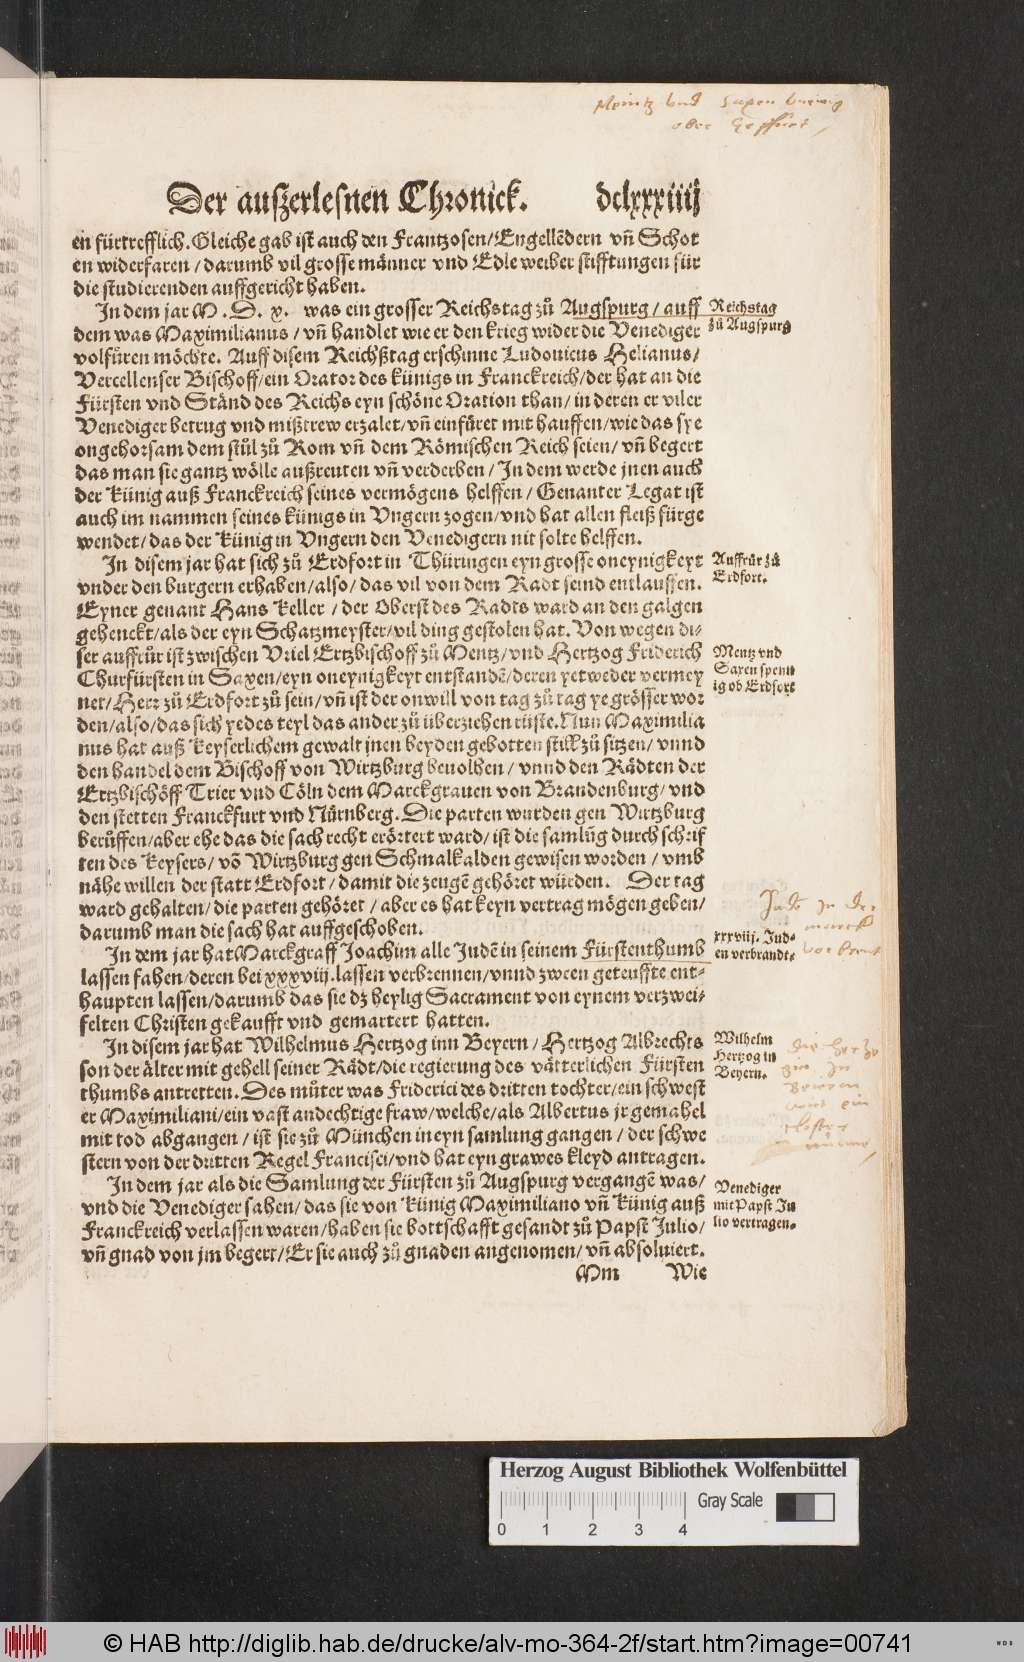 Meintz und Saxen
Der auszerlesnen Chronick. dclxxxiiij
en fürtrefflich. Gleiche gab ist auch den Frantzosen/Engellēdern vn̄ Schot
en widerfaren/darumb vil grosse männer vnd Edle weiber stifftungen für
die studierenden auffgericht haben.
In dem jar M. D. x. was ein grosser Reichstag zů Augspurg/auff
Reichstag
zů Augspurg
dem was Maximilianus/vn̄ handlet wie er den krieg wider die Venediger
volfüren möchte. Auff disem Reichßtag erschinne Ludouicus Helianus/
Vercellenser Bischoff/ein Orator des künigs in Franckreich/der hat an die
Fürsten vnd Ständ des Reichs eyn schöne Oration than/in deren er viler
Venediger betrug vnd mißtrew erzalet/vn̄ einfüret mit hauffen/wie das sye
ongehorsam dem stůl zů Rom vn̄ dem Römischen Reich seien/vn̄ begert
das man sie gantz wölle außreuten vn̄ verderben/In dem werde jnen auch
der Künig auß Franckreich seines vermögens helffen/Genanter Legat ist
auch im nammen seines künigs in Vngern zogen/vnd hat allen fleiß fürge
wendet/das der Künig in Vngern den Venedigern nit solte helffen.
In disem jar hat sich zů Erdfort in Thüringen eyn grosse oneynigkeyt
Auffrůr zů
Erdfort.
vnder den burgern erhaben/also/das vil von dem Radt seind entlauffen.
Eyner genant Hans Keller/der Oberst des Radts ward an den galgen
gehenckt/als der eyn Schatzmeyster/vil ding gestolen hat. Von wegen di-
ser auffrůr ist zwischen Vriel Ertzbischoff zů Mentz/vnd Hertzog Friderich
Mentz vnd
Saxen spenn
ig ob Erdfort
Churfürsten in Saxen/eyn oneynigkeyt entstandē/deren yetweder vermey
net/Herr zů Erdfort zů sein/vn̄ ist der onwill von tag zů tag ye grösser wor
den/also/das sich yedes teyl das ander zů überziehen rüste. Nun Maximilia
nus hat auß Keyserlichem gewalt jnen beyden gebotten still zů sitzen/vnnd
den handel dem Bischoff von Wirtzburg beuolhen/vnnd den Rädten der
Ertzbischöff Trier vnd Cöln dem Marckgrauen von Brandenburg/vnd
den stetten Franckfurt vnd Nürnberg. Die parten wurden gen Wirtzburg
berůffen/aber ehe das die sach recht erörtert ward/ist die samlūg durch schrif
ten des Keysers/vō Wirtzburg gen Schmalkalden gewisen worden/vmb
nähe willen der statt Erdfort/damit die zeugē gehöret würden. Der tag
ward gehalten/die parten gehöret/aber es hat keyn vertrag mögen geben/
darumb man die sach hat auffgeschoben.
In dem jar hat Marckgraff Joachim alle Judē in seinem Fürstenthumb
xxxviij. Jud-
en verbrandt.
lassen fahen/deren bei xxxviij. lassen verbrennen/vnnd zween geteuffte ent-
haupten lassen/darumb das sie dz heylig Sacrament von eynem verzwei-
felten Christen gekaufft vnd gemartert hatten.
In disem jar hat Wilhelmus Hertzog inn Beyern/Hertzog Albrechts
Wilhelm
Hertzog in
Beyern.
son der älter mit gehell seiner Rädt/die regierung des vätterlichen Fürsten
thumbs antretten. Des můter was Friderici des dritten tochter/ein schwest
er Maximiliani/ein vast andechtige fraw/welche/als Albertus jr gemahel
mit tod abgangen/ist sie zů München in eyn samlung gangen/der schwe
stern von der dritten Regel Francisci/vnd hat eyn grawes kleyd antragen.
In dem jar als die Samlung der Fürsten zů Augspurg vergangē was/
Venediger
mit Papst Ju
lio vertragen.
vnd die Venediger sahen/das sie von Künig Maximiliano vn̄ Künig auß
Franckreich verlassen waren/haben sie bottschafft gesandt zů Papst Julio/
vn̄ gnad von jm begert/Er sie auch zů gnaden angenomen/vn̄ absoluiert.
Mm Wie
Herzog August Bibliothek Wolfenbüttel
Gray Scale
0 1 2 3 4
© HAB http://diglib.hab.de/drucke/alv-mo-364-2f/start.htm?image=00741